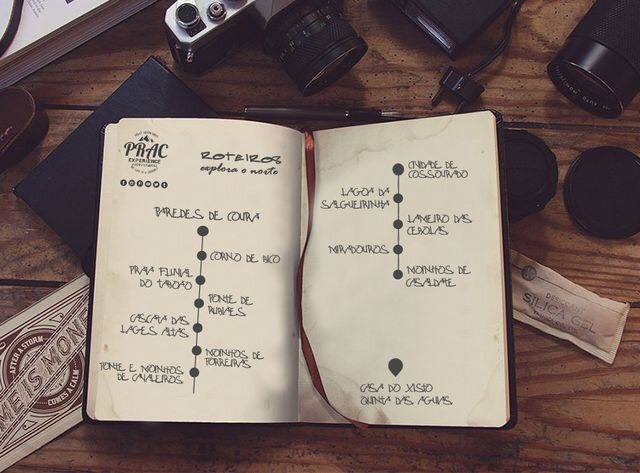 PRAC
EXPERIENCE
ROTEIROS
explora o norte
PAREDES DE COURA
CORNO DE BICO
PRAIA FLUVIAL
DO TABOÃO
PONTE DE
RUBIÃES
CASCATA DAS
LAGES ALTAS
MOINHOS DE
PORREIRAS
PONTE E MOINHOS
DE CAVALEIROS
CIVIDADE DE
COSSOURADO
LAGOA DA
SALGUEIRINHA
LAMEIRO DAS
CEBOLAS
MIRADOUROS
MOINHOS DE
CASALDATE
CASA DO XISTO
QUINTA DAS AGUIAS
AFTER A STORM
COMES A CALM
SILICA GEL